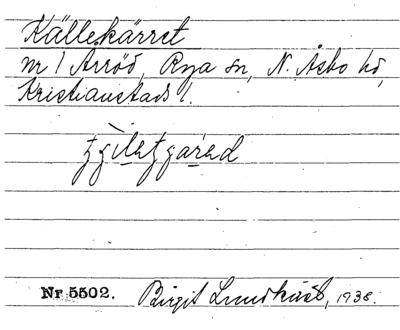 Källekärret
nr 1 Arröd, Rya sn, N. Åsbo hd,
Kristianstads l.
Nr 5502. Birgit Lundkvist, 1938.